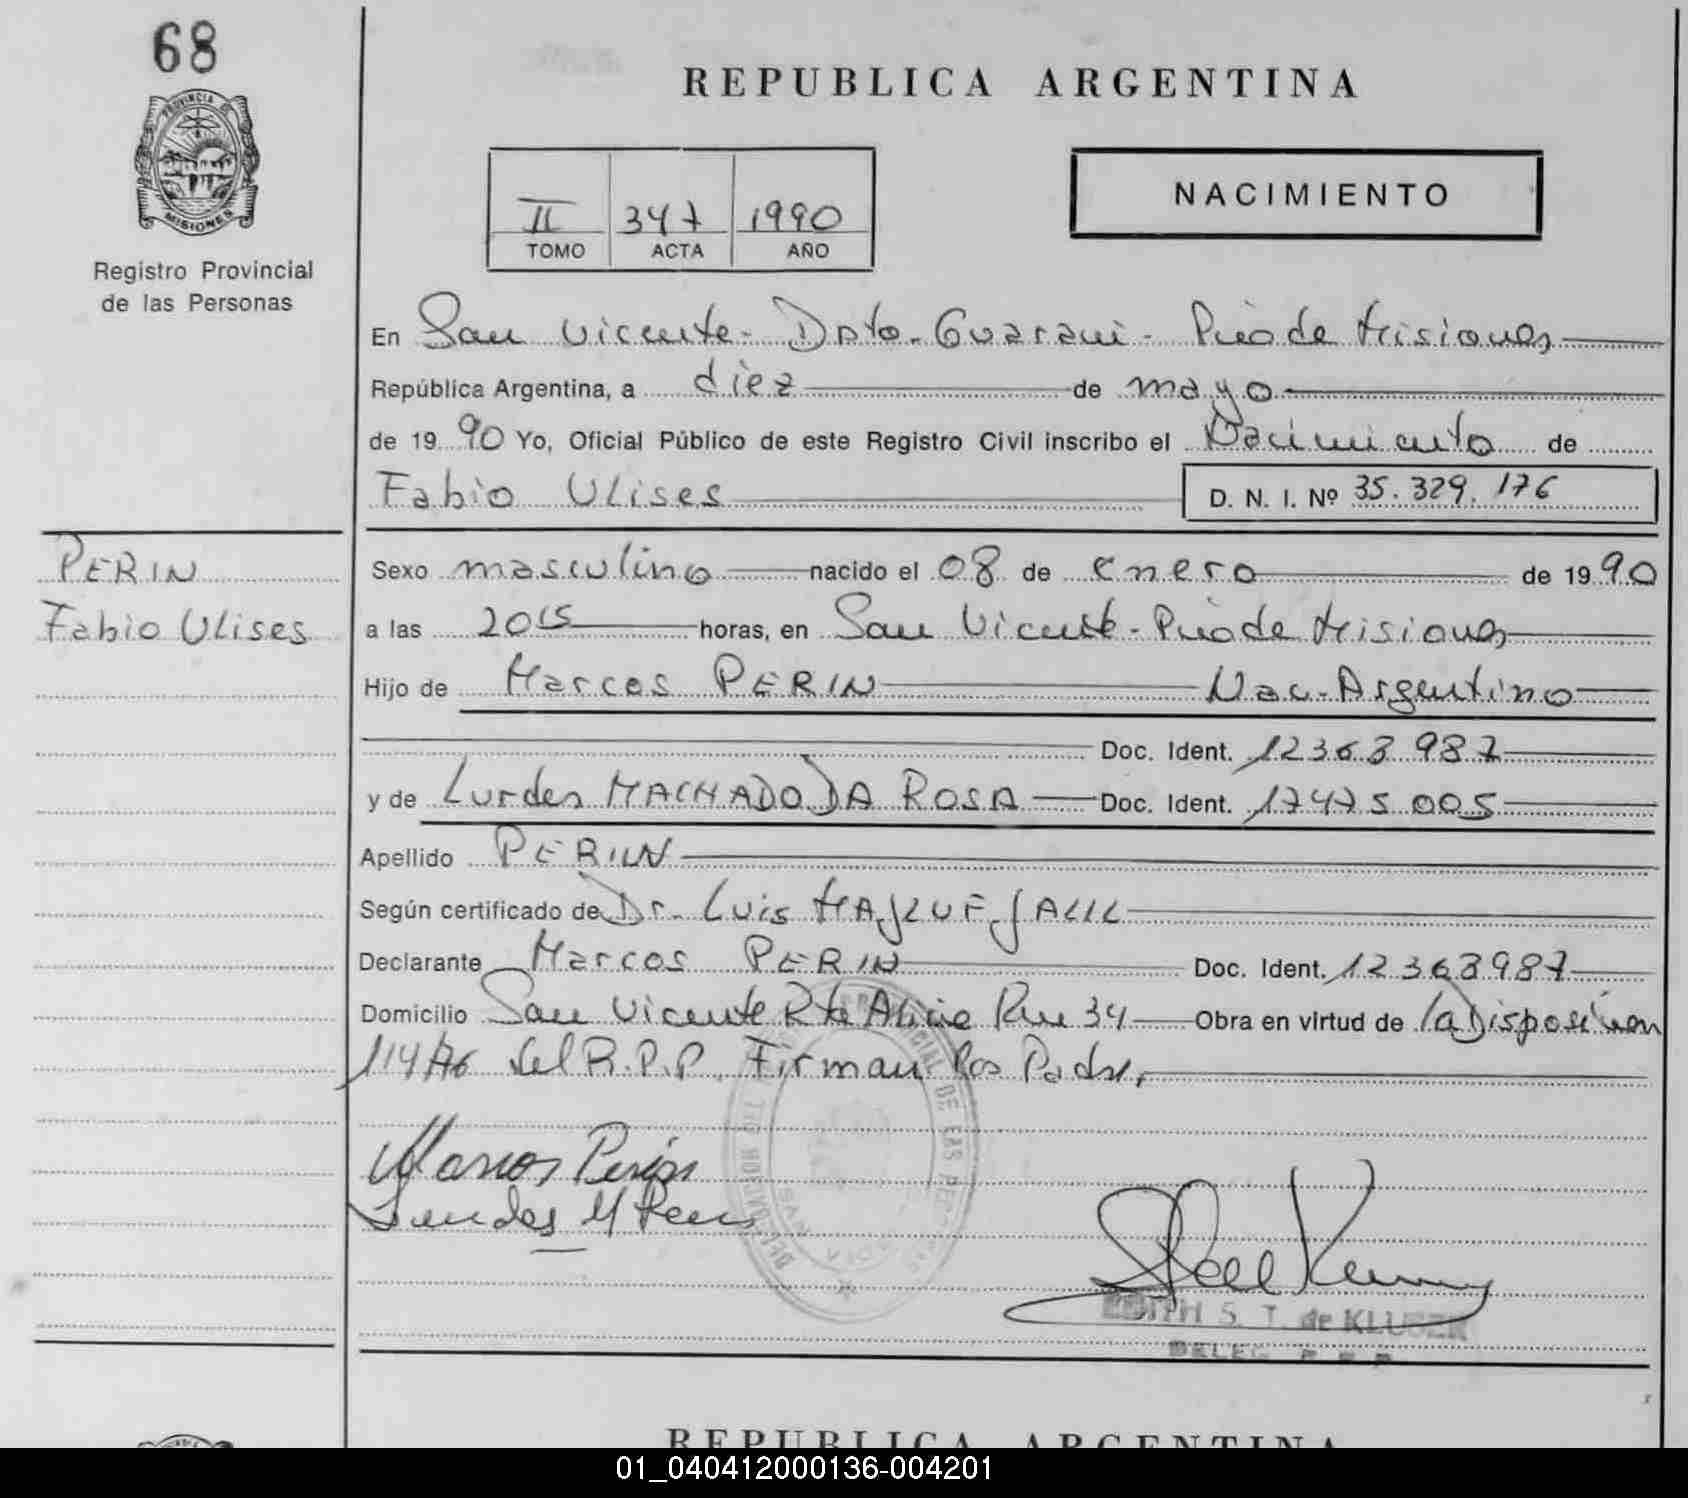 68
PROVINCIA DE
MISIONES
Registro Provincial
de las Personas
REPUBLICA ARGENTINA
II 347 1990
TOMO ACTA AÑO
NACIMIENTO
En San Vicente - Dpto. Guaraní - Pcia de Misiones
República Argentina, a diez de mayo
de 1990 Yo, Oficial Público de este Registro Civil inscribo el Nacimiento de
Fabio Ulises D. N. I. Nº 35.329.176
PERIN
Fabio Ulises
Sexo masculino nacido el 08 de enero de 1990
a las 20 15 horas, en San Vicente - Pcia de Misiones
Hijo de Marcos PERIN Nac. Argentino
Doc. Ident. 12363987
y de Lurdes MACHADO DA ROSA Doc. Ident. 17475005
Apellido PERIN
Según certificado de Dr. Luis
Declarante Marcos PERIN Doc. Ident. 12363987
Domicilio San Vicente Rta Alicia Km 34 Obra en virtud de la Disposición
114/76 del R.P.P. Firman los Padres
Marcos Perin
EDITH S. T. de KLUGER
DELEG. R P P
REPUBLICA ARGENTINA
01_040412000136-004201